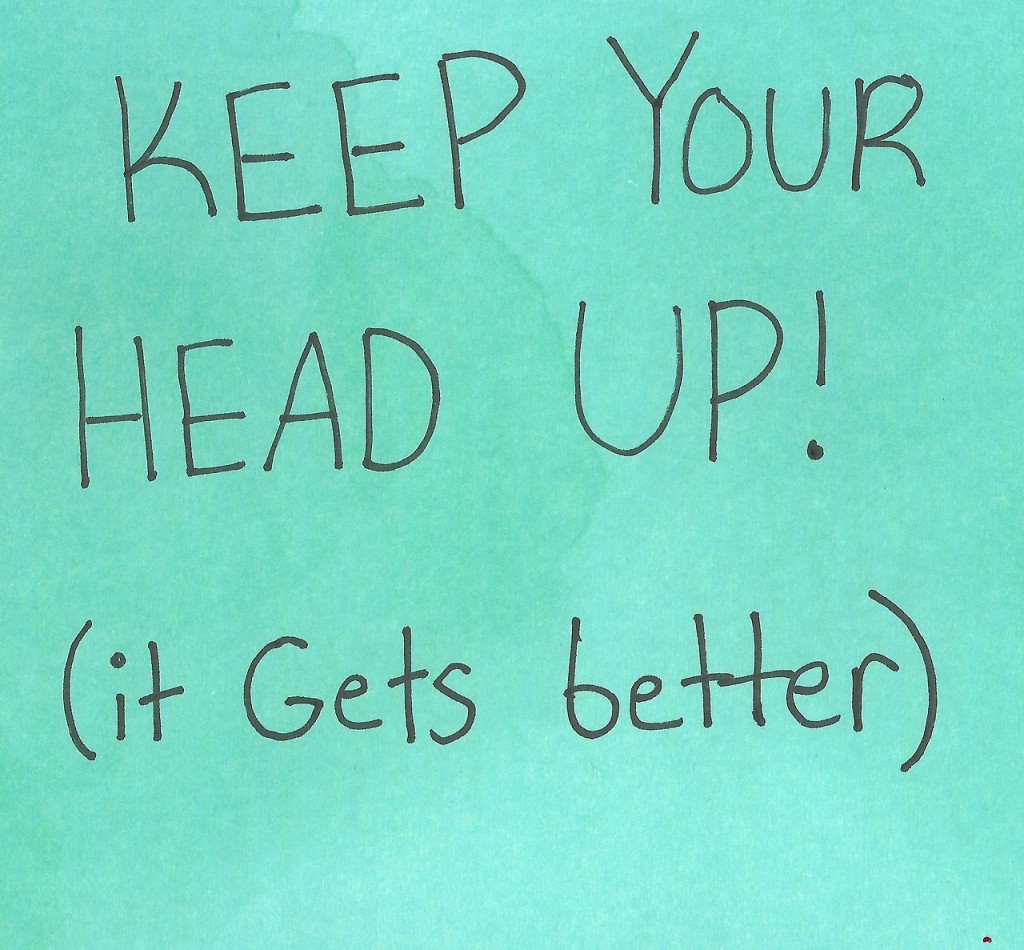 KEEP YOUR
HEAD UP!
(it Gets better)